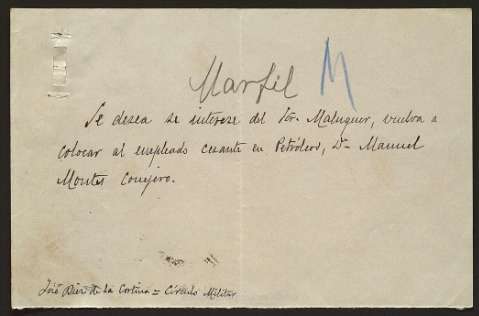 Marfil M
Se desea se interese del Sor. Maluquer, vuelva a
colocar al empleado cesante en Petróleos, Dn. Manuel
Montes Conejero.
José Díez de la Cortina = Círculo Militar